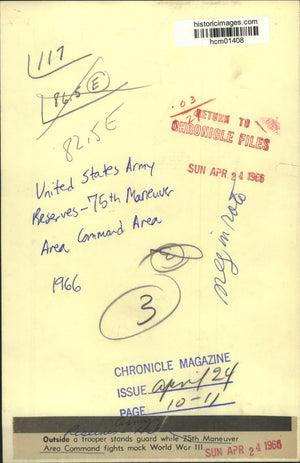 historicimages.com
hcm01408
117
86.5 E
82.5 E
.03
RETURN TO
CHRONICLE FILES
SUN APR 24 1966
United States Army
Reserves - 75th Maneuver
Area Command Area
1966
neg in roto
2
3
CHRONICLE MAGAZINE
ISSUE april 24
PAGE 10-11
Outside a trooper stands guard while 75th Maneuver
Area Command fights mock World War III
SUN APR 24 1966